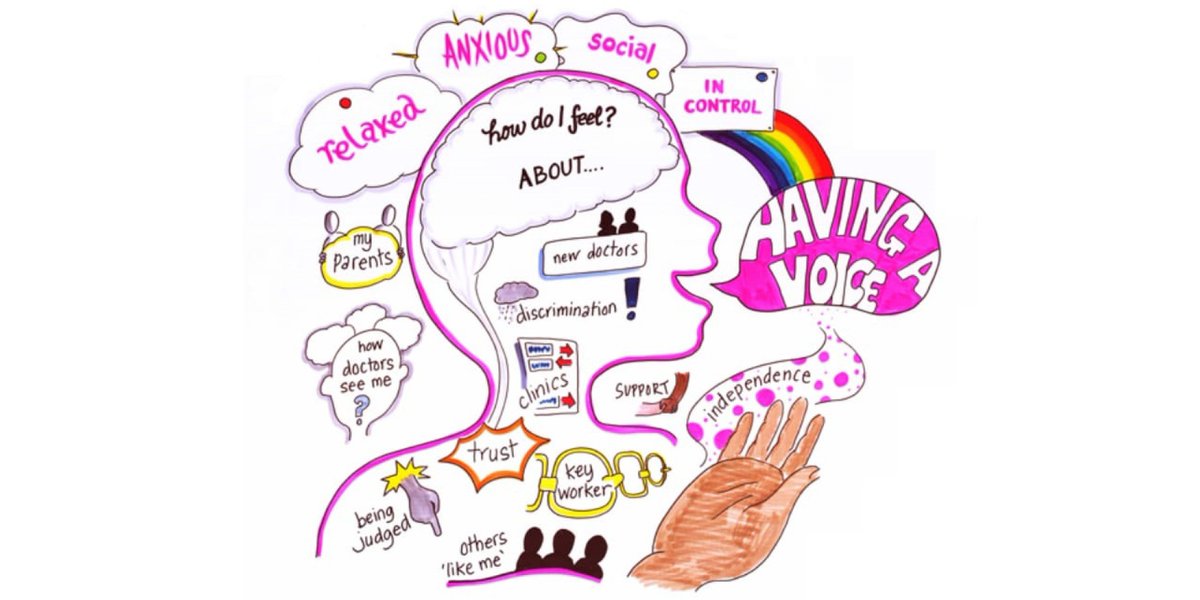 ANXIOUS
social
relaxed
IN
CONTROL
how do I feel?
ABOUT....
HAVING A
VOICE
my
Parents
new doctors
discrimination
!
how
doctors
see me
?
clinics
SUPPORT
independence
trust
key
worker
being
judged
others
'like me'